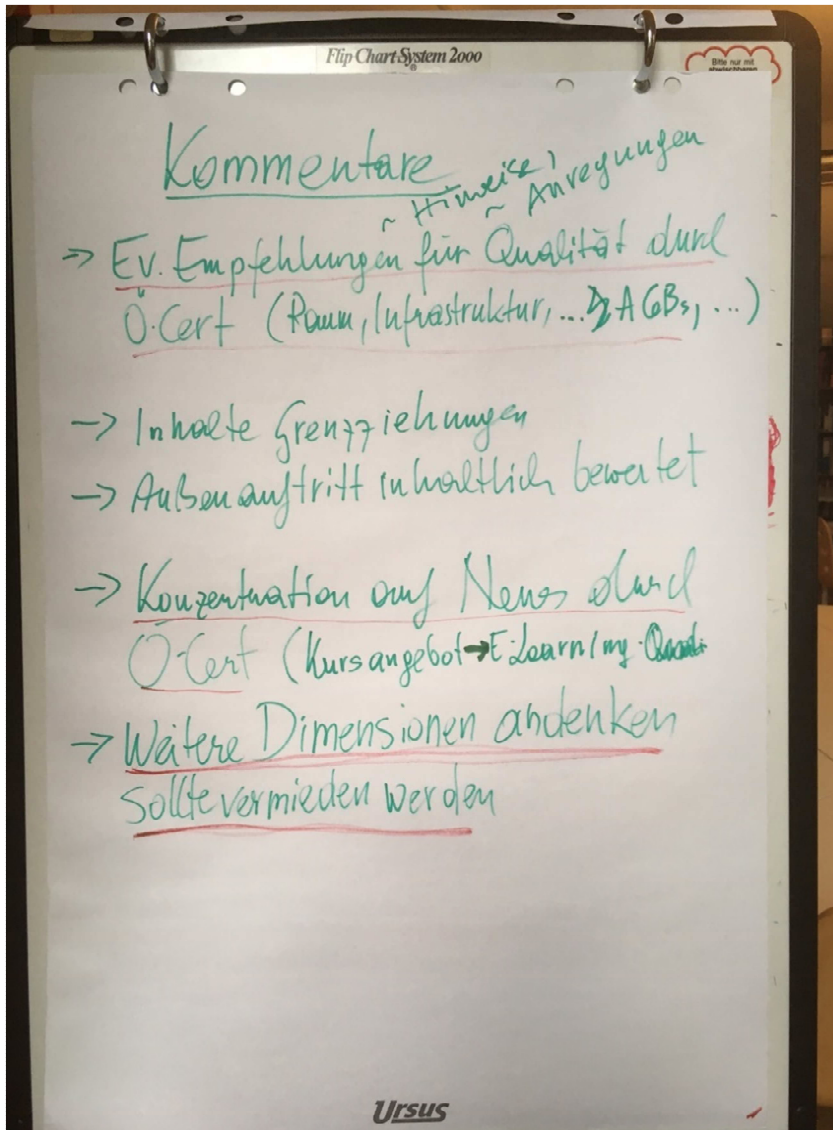 Flip Chart System 2000
Bitte nur mit
abwischbaren
Kommentare
~ Hinweise,
~ Anregungen
→ Ev. Empfehlungen für Qualität durch
Ö-Cert (Raum, Infrastruktur, ... AGBs, ...)
→ Inhalte Grenzziehungen
→ Außenauftritt inhaltlich bewertet
→ Konzentration auf Neues durch
Ö-Cert (Kursangebot → E-Learning
→ Weitere Dimensionen andenken
sollte vermieden werden
Ursus